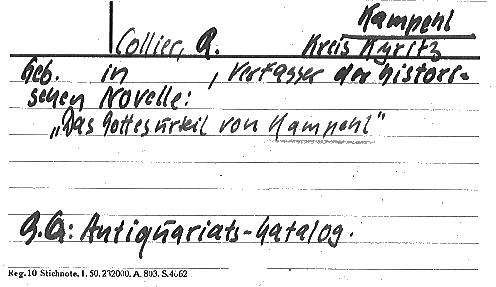 Kampehl
Collier, A. Kreis Kyritz
Geb. in , Verfasser der histori-
schen Novelle:
„Das Gottesurteil von Kampehl"
Q.A: Antiquariats-Katalog.
Reg. 10 Stichnote. I. 50. 232000. A. 803. S. 4662